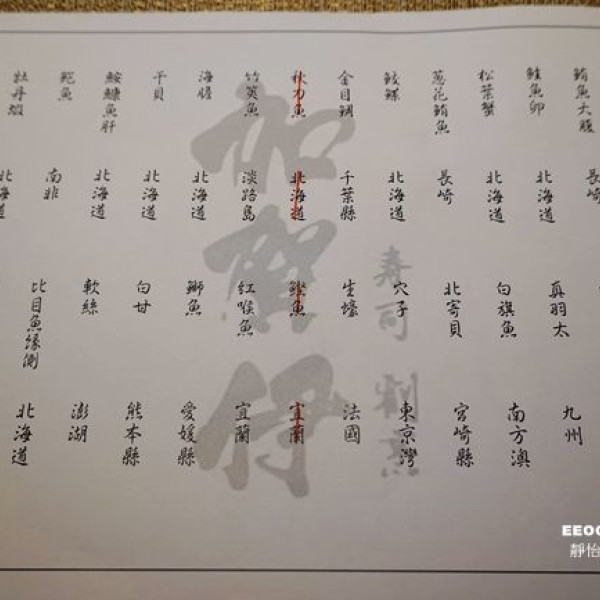 鮪魚大腹
長崎
鮭魚卵
北海道
松葉蟹
北海道
蔥花鮪魚
長崎
鮫鰈
北海道
金目鯛
千葉縣
秋刀魚
北海道
竹筴魚
淡路島
海膽
北海道
干貝
北海道
鮟鱇魚肝
北海道
鮑魚
南非
牡丹蝦
北海道
真羽太
九州
白旗魚
南方澳
北寄貝
宮崎縣
穴子
東京灣
生蠔
法國
鰹魚
宜蘭
紅喉魚
宜蘭
鰤魚
愛媛縣
白甘
熊本縣
軟絲
澎湖
比目魚緣側
北海道
加賀伊
壽司 割烹
靜怡